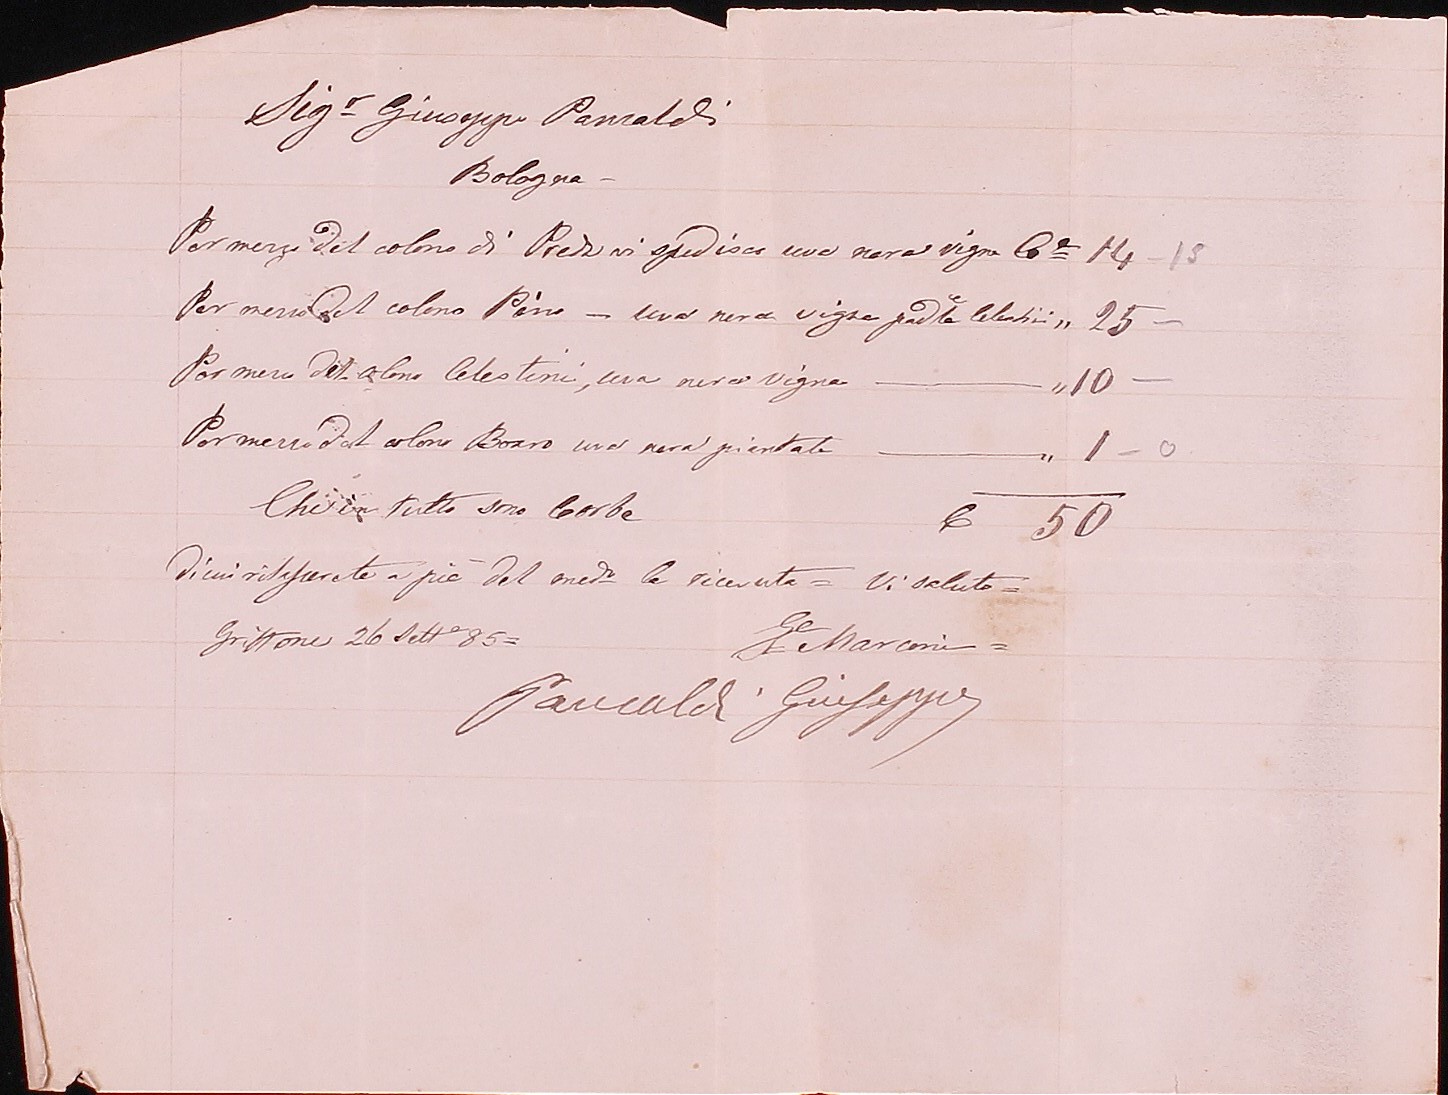 Sigr Giuseppe Pancaldi
Bologna -
Per mezzo del colono di vi spedisco uva nera vigna Ce 14 - 15
Per mezzo del colono Pirro - uva nera vigna Celestini " 25 -
Per mezzo del colono Celestini, uva nera vigna " 10 -
Per mezzo del colono uva nera piantate " 1 - 0
Che in tutto sono Corbe C 50
Di cui rilascerete a piè del medo la ricevuta = Vi saluto =
Griffone 26 Sette 85 =
Ge Marconi =
Pancaldi Giuseppe